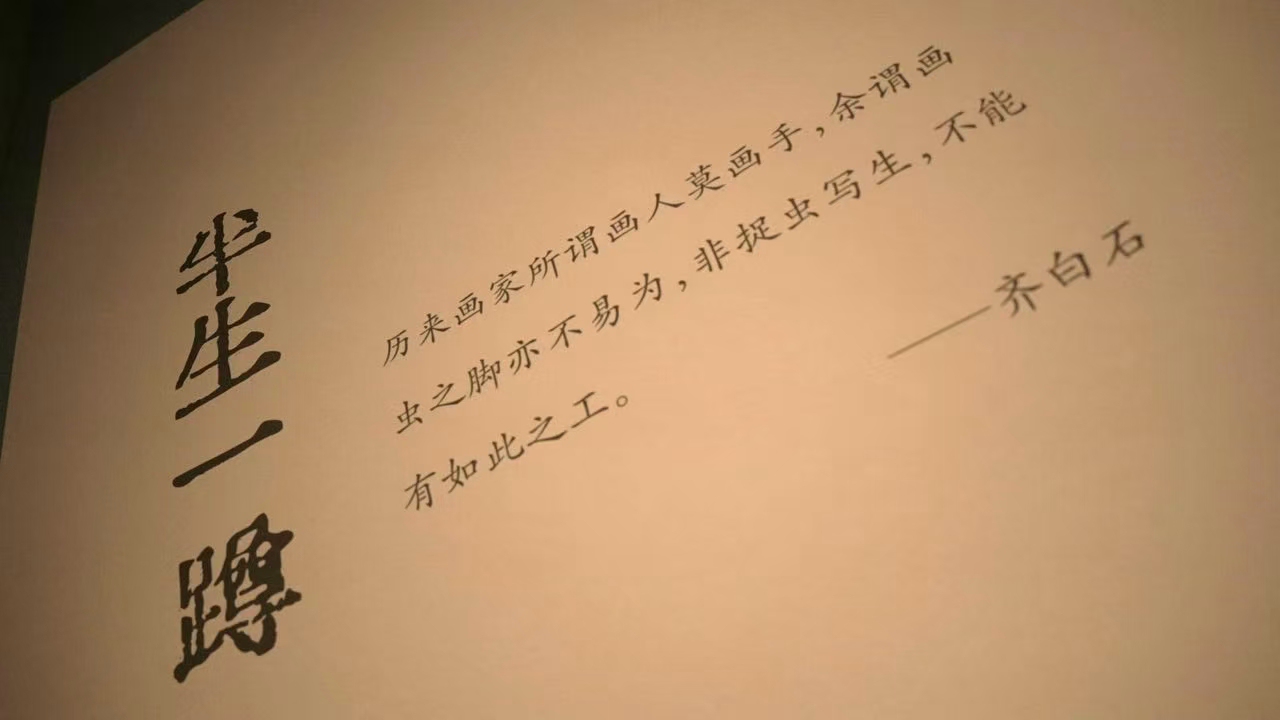 半生一蹲
历来画家所谓画人莫画手，余谓画
虫之脚亦不易为，非捉虫写生，不能
有如此之工。
——齐白石